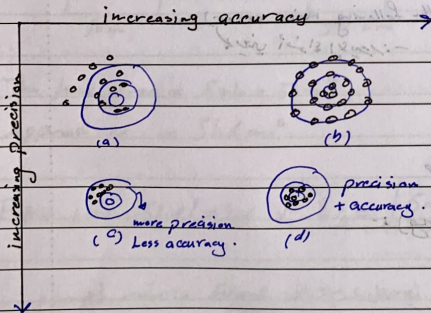 increasing accuracy
increasing precision
(a)
(b)
(c)
more precision
Less accuracy.
(d)
precision
+ accuracy.